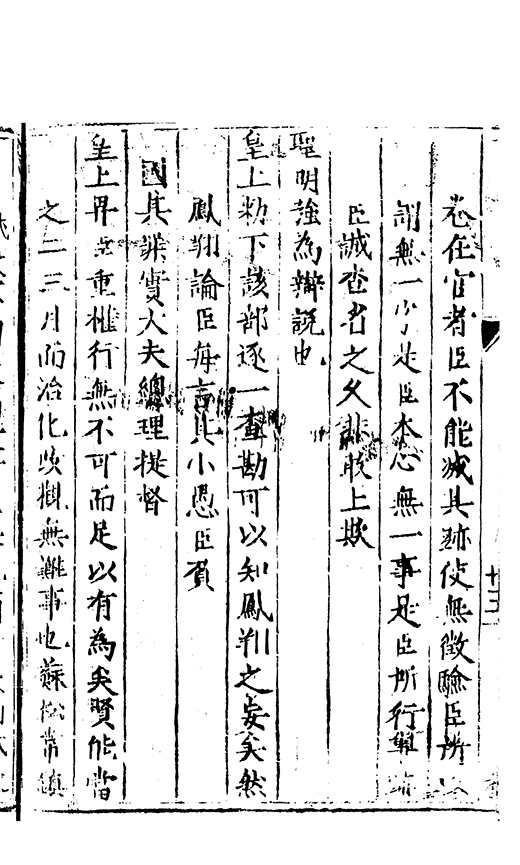 卷在官者臣不能滅其跡使無徵驗臣所
謂無一字是臣本心無一事是臣所行單
臣誠沓名之久非敢上欺
聖明強為辯說也
皇上勑下該部逐一查勘可以知鳳翔之妄矣然
鳳翔論臣每言其小愚臣負
國其罪實大夫總理提督
皇上畀重權行無不可而足以有為矣賢能當
之二三月而治化改觀無難事也蘇松常鎮
十三